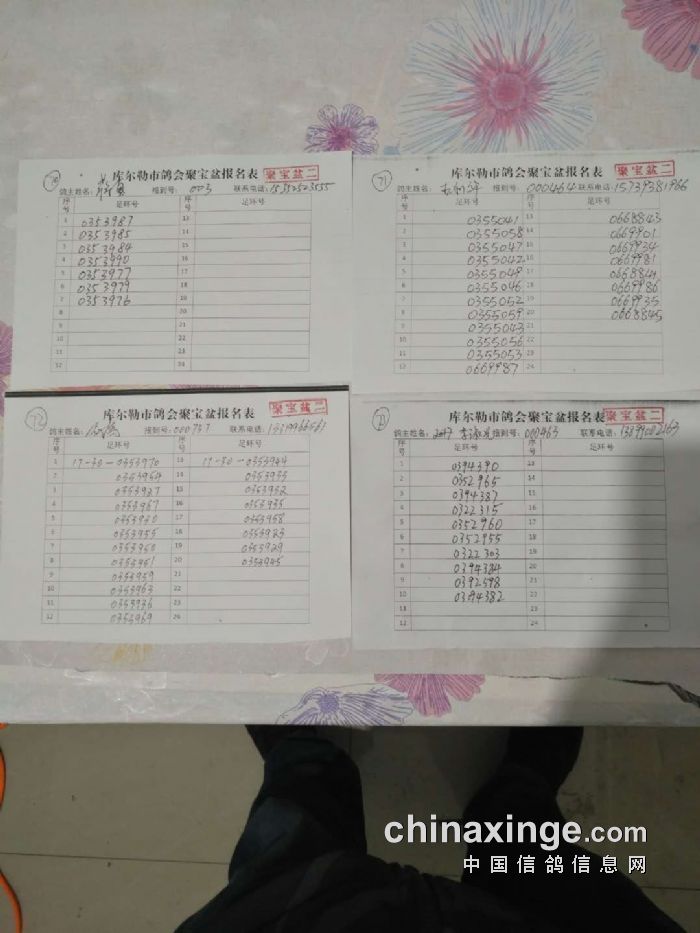 70
库尔勒市鸽会聚宝盆报名表 聚宝盆二
鸽主姓名: 报到号: 003 联系电话:
序号 足环号 序号 足环号
1 0353987 13
2 0353985 14
3 0353984 15
4 0353990 16
5 0353977 17
6 0353979 18
7 0353976 19
8 20
9 21
10 22
11 23
12 24
71
库尔勒市鸽会聚宝盆报名表 聚宝盆二
鸽主姓名: 报到号: 000464 联系电话: 15739381966
序号 足环号 序号 足环号
1 0355041 13 0668843
2 0355058 14 0669901
3 0355047 15 0669934
4 0355042 16 0669981
5 0355048 17
6 0355046 18 0669986
7 0355052 19 0669935
8 0355059 20 0668845
9 0355043 21
10 0355056 22
11 0355053 23
12 0669987 24
72
库尔勒市鸽会聚宝盆报名表 聚宝盆二
鸽主姓名: 报到号: 联系电话:
序号 足环号 序号 足环号
1 17-30-0353970 13 17-30-0353944
2 0353954 14
3 0353927 15 0353932
4 0353967 16 0353935
5 0353930 17 0353958
6 0353955 18 0353923
7 0353950 19 0353929
8 0353951 20 0353945
9 0353959 21
10 0353963 22
11 0353936 23
12 0353969 24
库尔勒市鸽会聚宝盆报名表 聚宝盆二
鸽主姓名: 报到号: 000463 联系电话:
序号 足环号 序号 足环号
1 0394390 13
2 0352965 14
3 0394387 15
4 0322315 16
5 0352960 17
6 0352955 18
7 0322303 19
8 0394384 20
9 0392598 21
10 0394382 22
11 23
12 24
chinaxinge.com
中国信鸽信息网